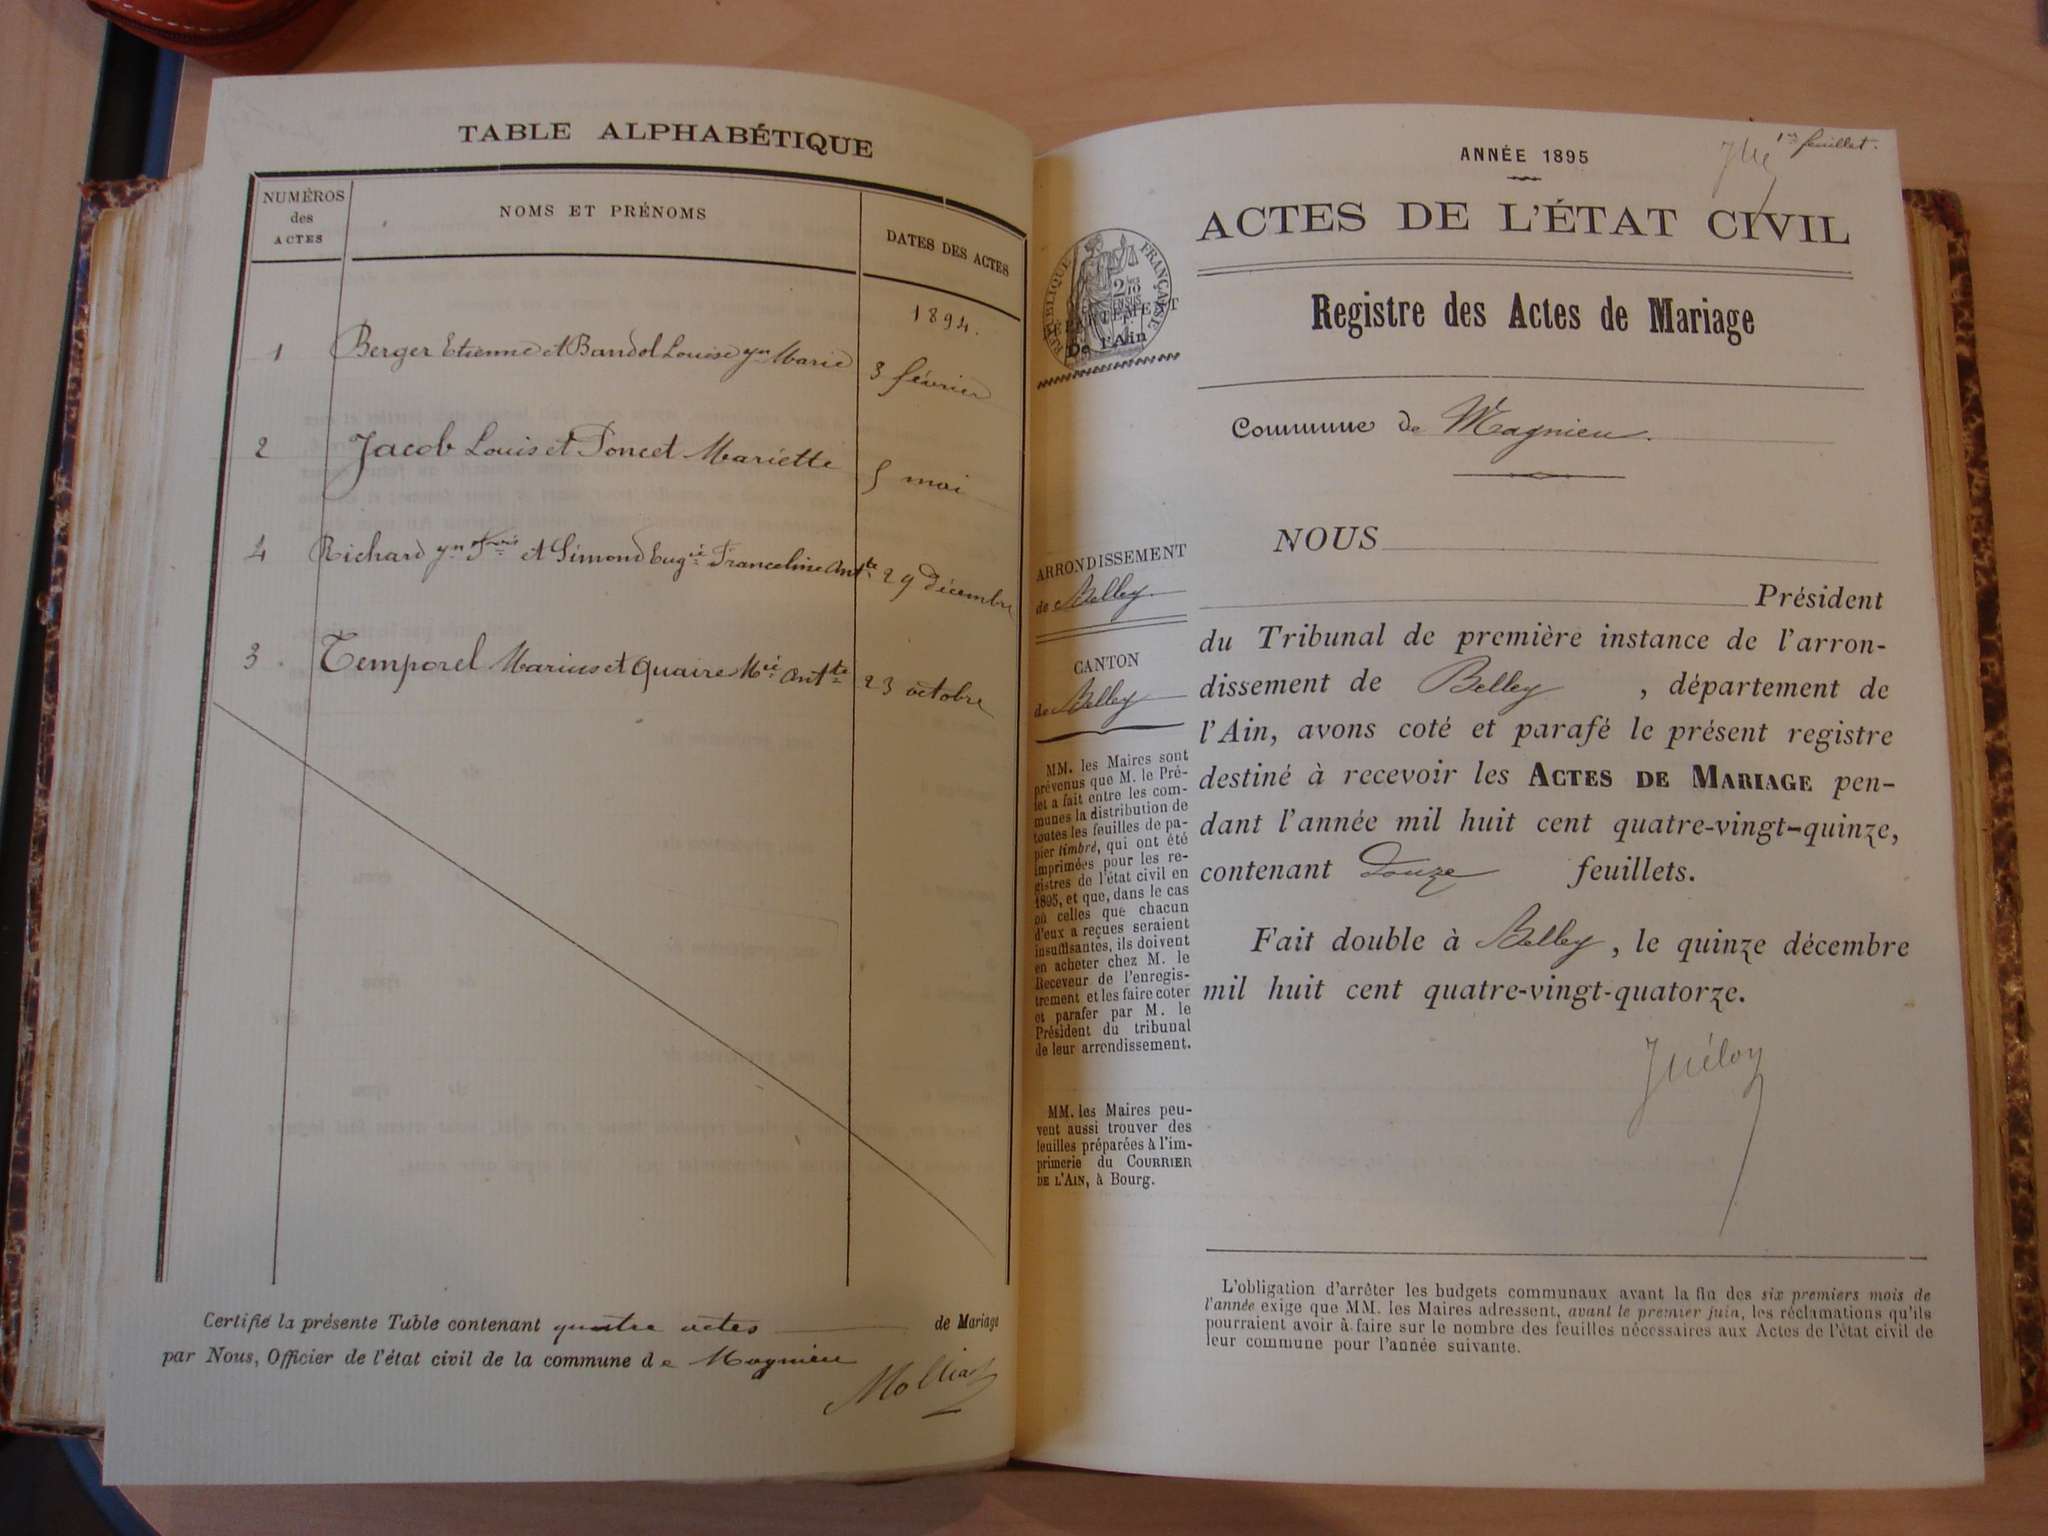 TABLE ALPHABÉTIQUE
NUMÉROS
des
ACTES
NOMS ET PRÉNOMS
DATES DES ACTES
1894.
1 Berger Etienne et Bandol Louise Marie 3 février
2 Jacob Louis et Poncet Mariette 5 mai
4 Richard et Simond Eugie Franceline Antte 29 Décembre
3. Temporel Marius et Quaire Mie Antte 23 octobre
Certifié la présente Table contenant quatre actes de Mariage
par Nous, Officier de l'état civil de la commune de Magnieu
Molliat
1er feuillet.
ANNÉE 1895
ACTES DE L'ÉTAT CIVIL
RÉPUBLIQUE FRANÇAISE
De l'Ain
Registre des Actes de Mariage
Commune de Magnieu.
NOUS
Président
du Tribunal de première instance de l'arron-
dissement de Belley, département de
l'Ain, avons coté et parafé le présent registre
destiné à recevoir les ACTES DE MARIAGE pen-
dant l'année mil huit cent quatre-vingt-quinze,
contenant Douze feuillets.
Fait double à Belley, le quinze décembre
mil huit cent quatre-vingt-quatorze.
ARRONDISSEMENT
de Belley.
CANTON
de Belley
MM. les Maires sont
prévenus que M. le Pré-
fet a fait entre les com-
munes la distribution de
toutes les feuilles de pa-
pier timbré, qui ont été
imprimées pour les re-
gistres de l'état civil en
1895, et que, dans le cas
où celles que chacun
d'eux a reçues seraient
insuffisantes, ils doivent
en acheter chez M. le
Receveur de l'enregis-
trement et les faire coter
et parafer par M. le
Président du tribunal
de leur arrondissement.
MM. les Maires peu-
vent aussi trouver des
feuilles préparées à l'im-
primerie du COURRIER
DE L'AIN, à Bourg.
L'obligation d'arrêter les budgets communaux avant la fin des six premiers mois de
l'année exige que MM. les Maires adressent, avant le premier juin, les réclamations qu'ils
pourraient avoir à faire sur le nombre des feuilles nécessaires aux Actes de l'état civil de
leur commune pour l'année suivante.